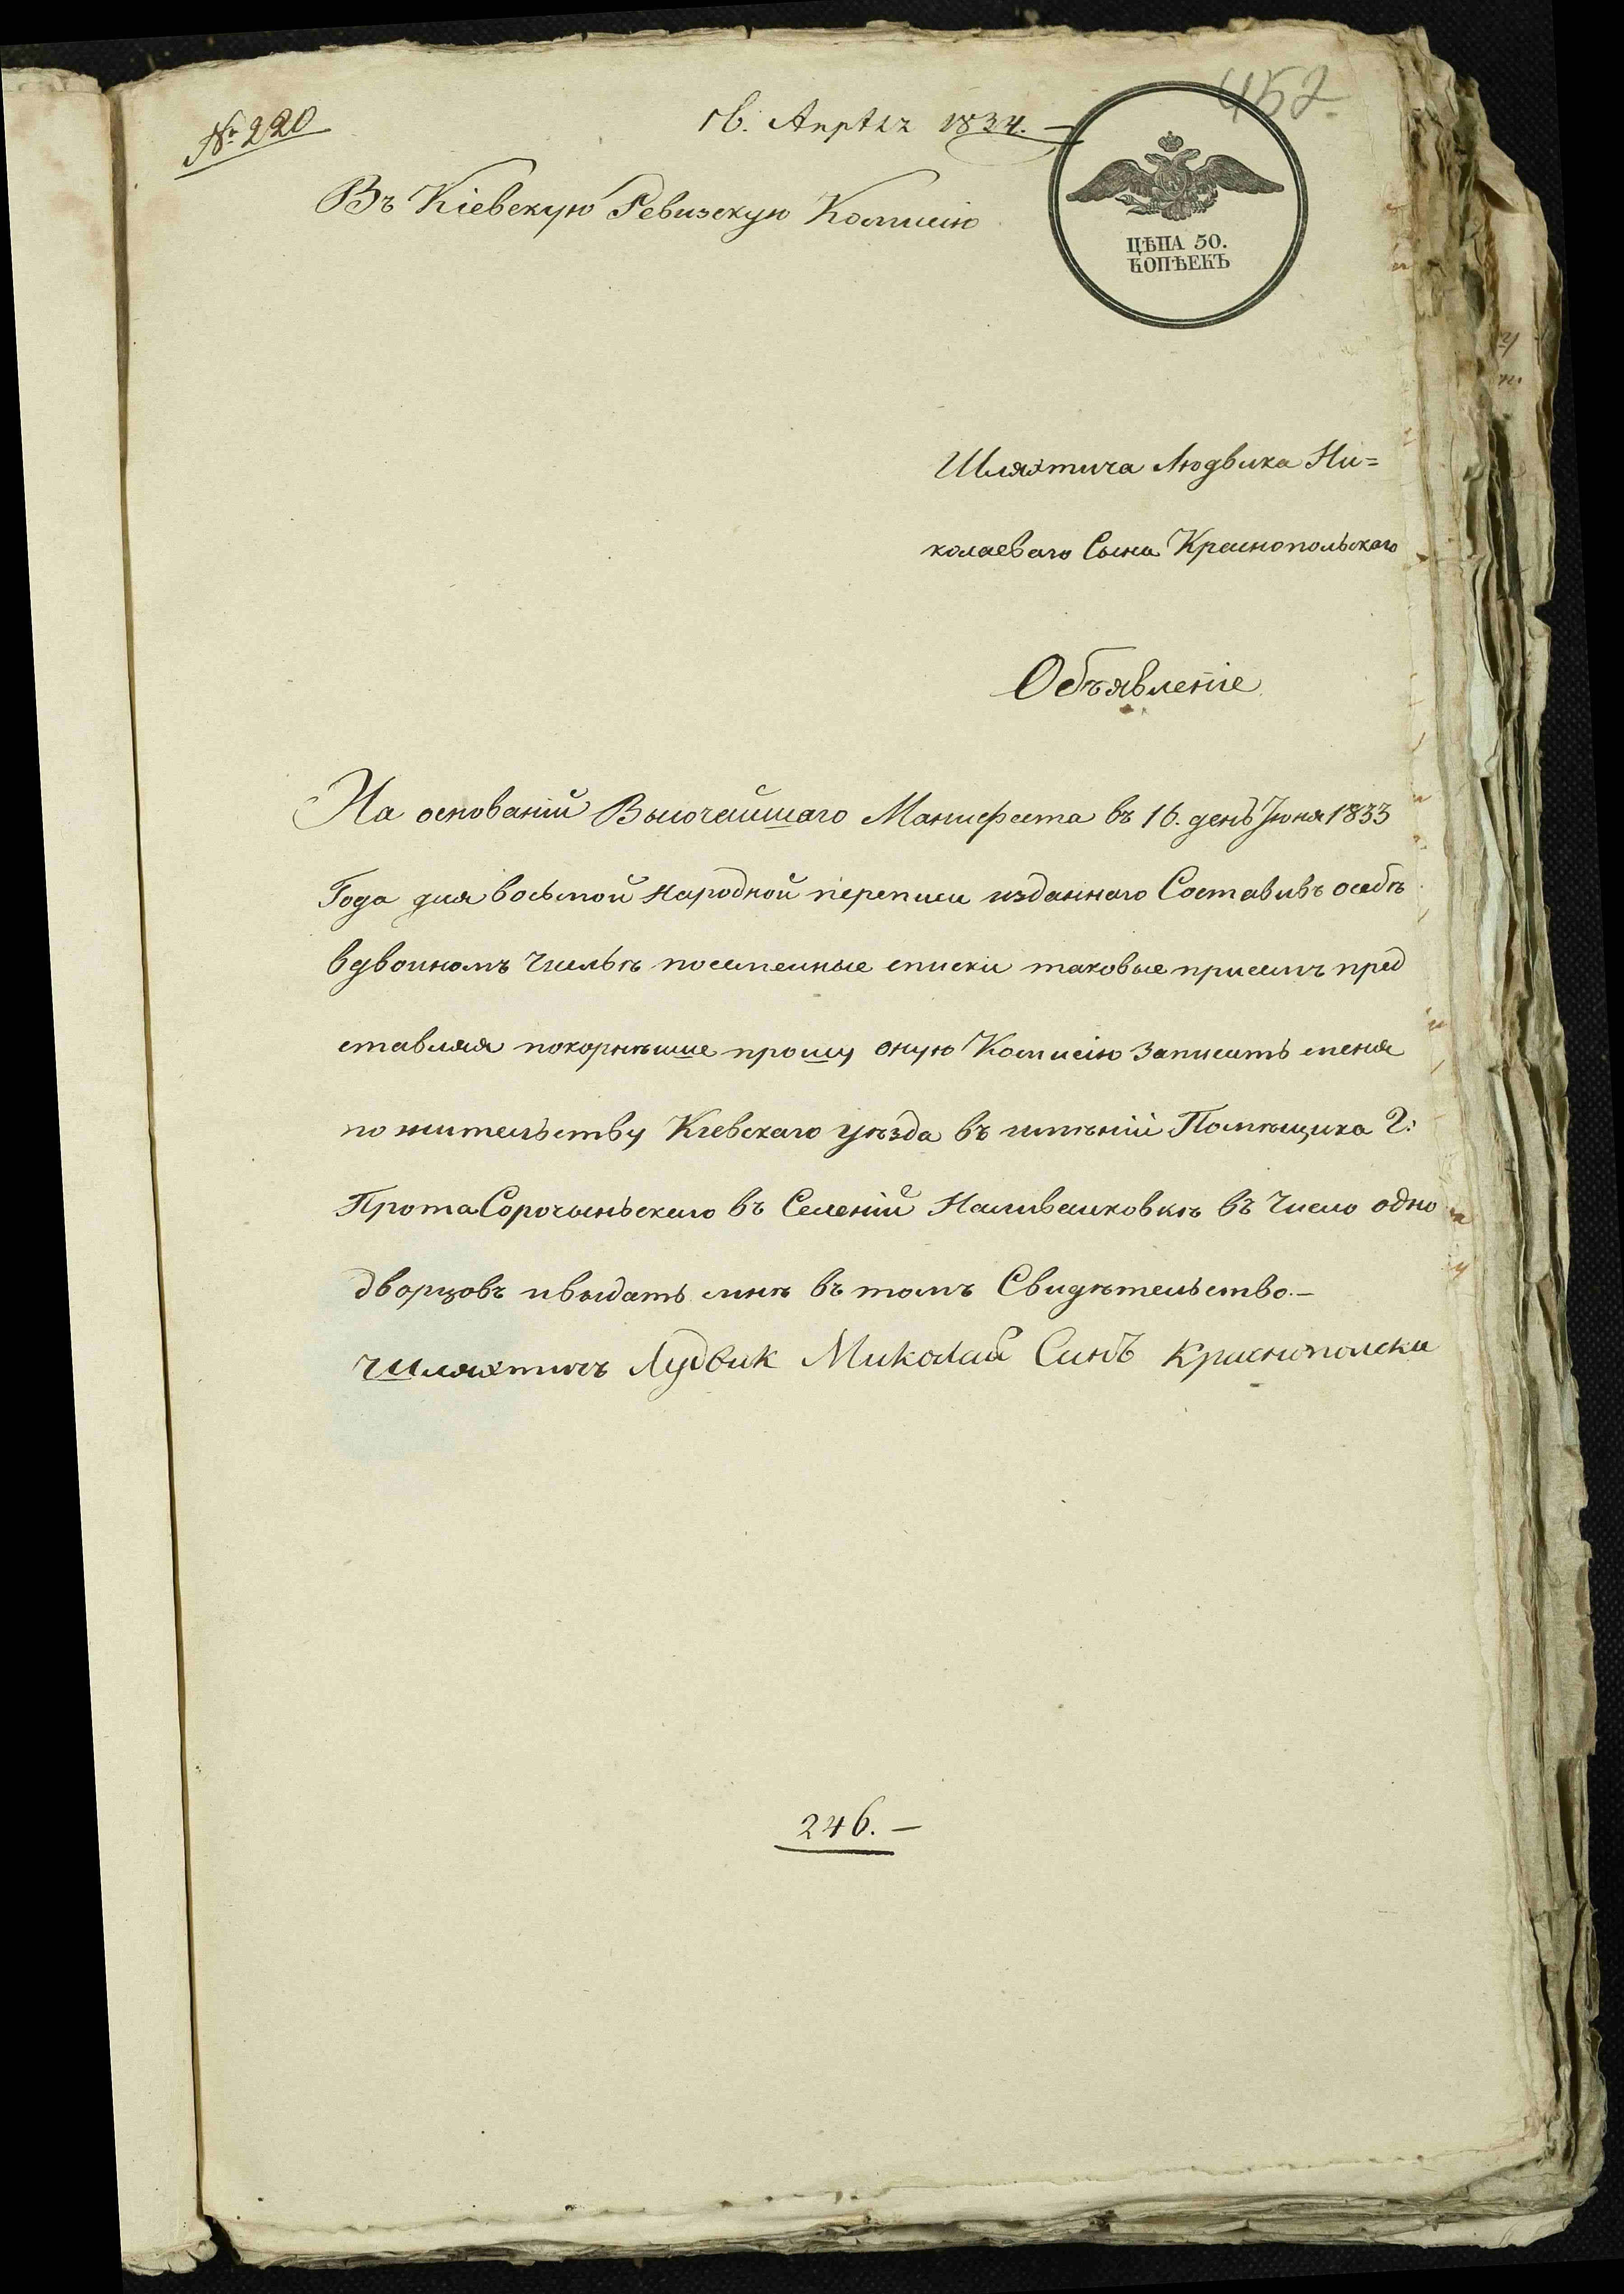 452
№ 220
16. Апрѣля 1834. —
Въ Кіевскую Ревизскую Комисію
ЦѢНА 50.
КОПѢЕКЪ
Шляхтича Людвика Ни=
колаеваго Сына Краснопольскаго
Объявленіе
На основаніи Высочайшаго Манифеста въ 16. день Іюня 1833
Года для восьмой народной переписи изданнаго Составивъ о себѣ
вдвойномъ числѣ посемейные списки таковые присемъ пред
ставляя покорнѣише прошу оную Комисію записать меня
по жительству Кіевскаго уѣзда въ имѣніи Помѣщика Г:
Прота Сорочинскаго въ Селеніи Наливайковкѣ въ Число одно
дворцовъ и выдать мнѣ въ томъ Свидѣтельство. —
Шляхтичъ Лудвик Миколай Синъ Краснополски
246. —